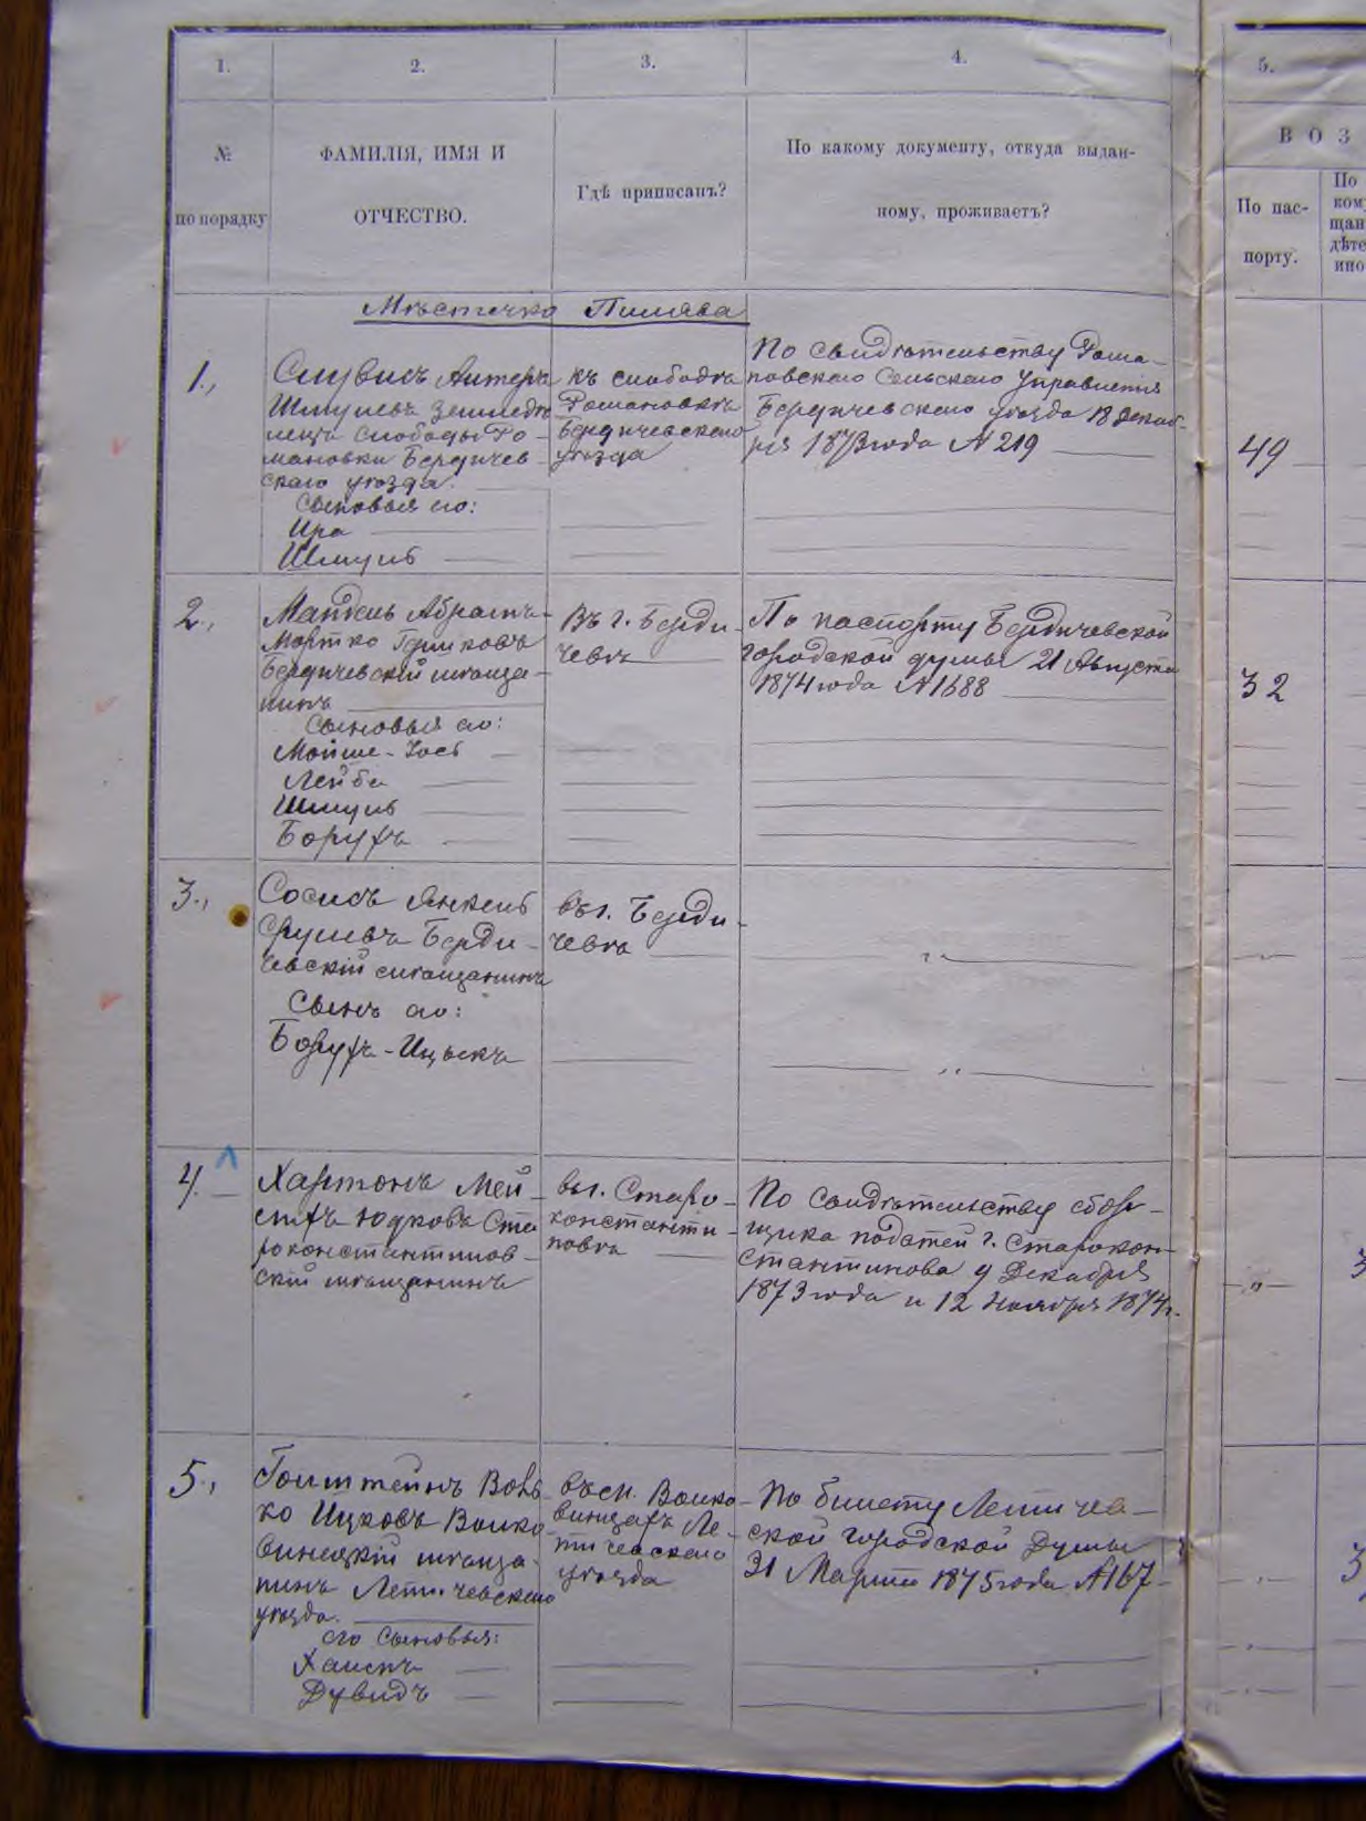 1.
2.
3.
4.
5.
№
по порядку
ФАМИЛІЯ, ИМЯ И
ОТЧЕСТВО.
Гдѣ приписанъ?
По какому документу, откуда выдан-
ному, проживаетъ?
В О З
По пас-
порту.
По
ком
щан
дѣте
ино
Мѣстечко Пилява
1.,
Шмулевъ земледѣ
лецъ слободы Ро-
мановки Бердичев-
скаго уѣзда.
Сыновья его:
Шмуль
къ слободѣ
Романовкѣ
Бердичевскаго
уѣзда
По свидѣтельству Рома-
новскаго Сельскаго Управленія
Бердичевскаго уѣзда 18 Декаб-
ря 1873 года № 219
49
2.,
Мандель Абрамъ-
Мортко Гершковъ
Бердичевскій мѣща-
нинъ
Сыновья его:
Мойше-Іось
Лейба
Шмуль
Борухъ
Въ г. Берди-
чевѣ
По паспорту Бердичевской
городской думы 21 Августа
1874 года № 1688
32
3.,
Сосисъ Янкель
Срулевъ Берди-
чевскій мѣщанинъ
Сынъ его:
Борухъ-Ицыкъ
въ г. Берди-
чевѣ
"
"
4.
Хартонъ Мей-
Юдковъ Ста
роконстантинов-
скій мѣщанинъ
въ г. Старо-
константи-
новѣ
По свидѣтельству сбор-
щика податей г. Старокон-
стантинова 9 Декабря
1873 года и 12 Ноября 1874 г.
"
3
5.,
Гольштейнъ Воль
ко Ицковъ Волко-
винецкій мѣща-
нинъ Летичевскаго
уѣзда.
его сыновья:
Хаимъ
Дувидъ
въ м. Волко-
винцахъ Ле-
тичевскаго
уѣзда
По билету Летичев-
ской городской Думы
31 Марта 1875 года № 167
3